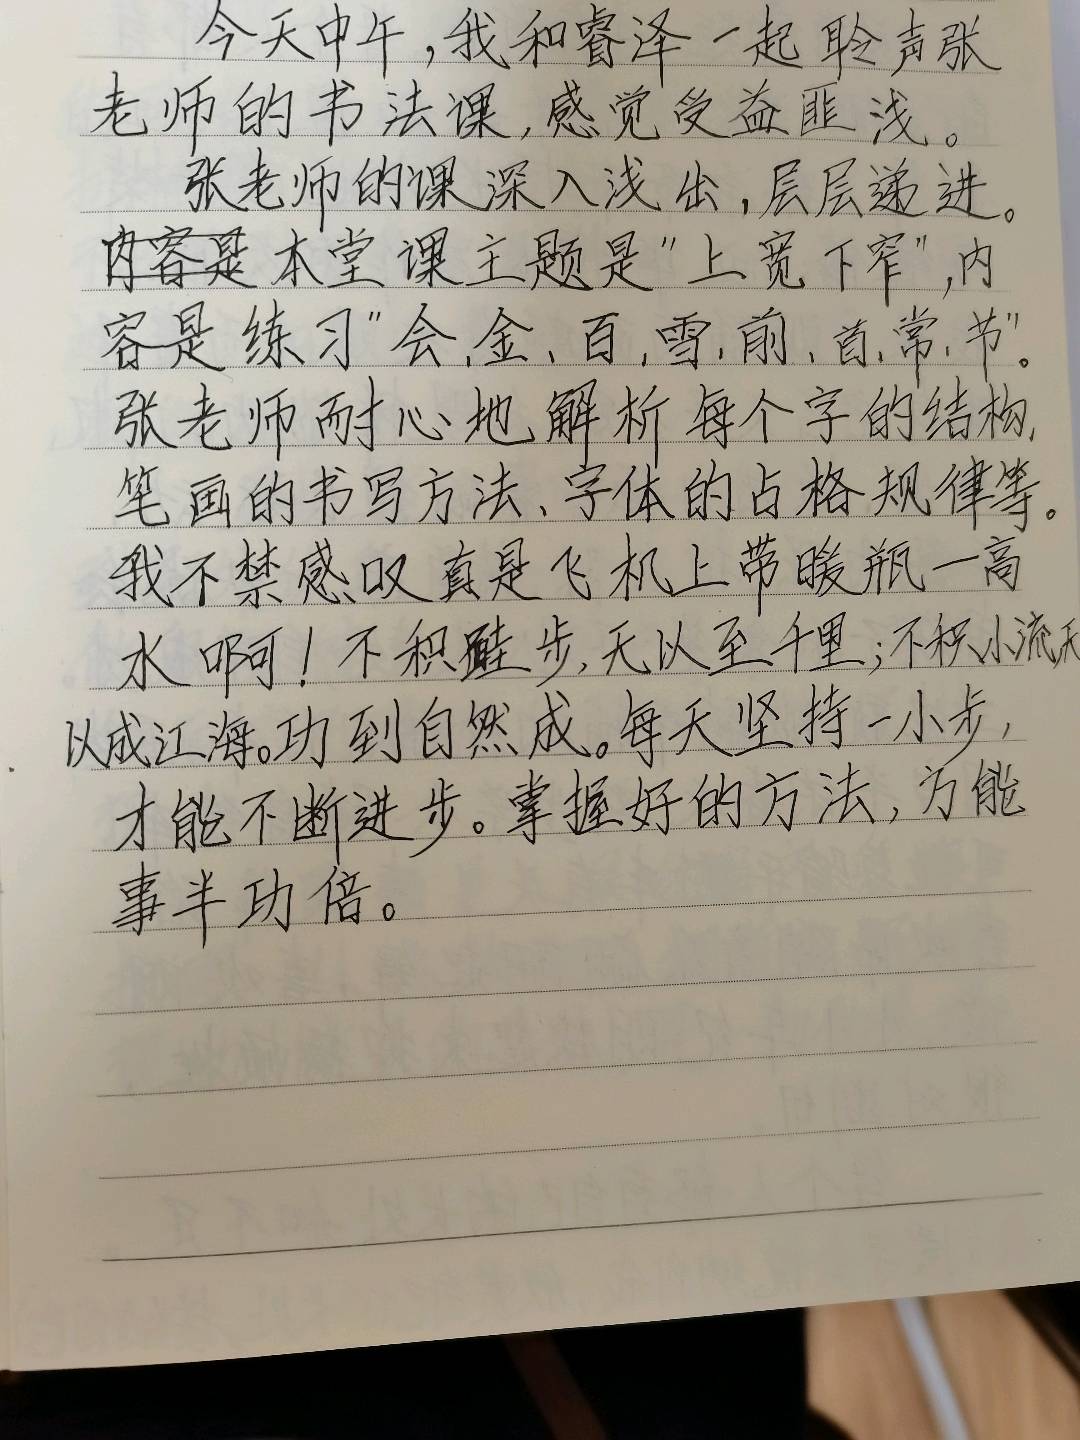 今天中午,我和睿泽一起聆声张
老师的书法课,感觉受益匪浅。
张老师的课深入浅出,层层递进。
内容是本堂课主题是"上宽下窄",内
容是练习"会、金、百、雪、前、首、常、节"。
张老师耐心地解析每个字的结构,
笔画的书写方法、字体的占格规律等。
我不禁感叹真是飞机上带暖瓶一高
水啊!不积跬步,无以至千里;不积小流无
以成江海。功到自然成。每天坚持一小步,
才能不断进步。掌握好的方法,方能
事半功倍。